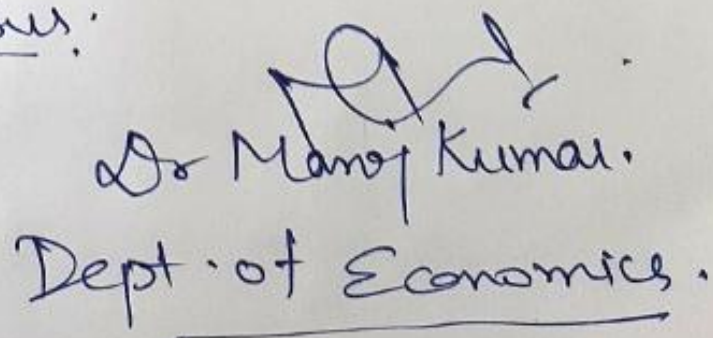 Dr Manoj Kumar.
Dept. of Economics.